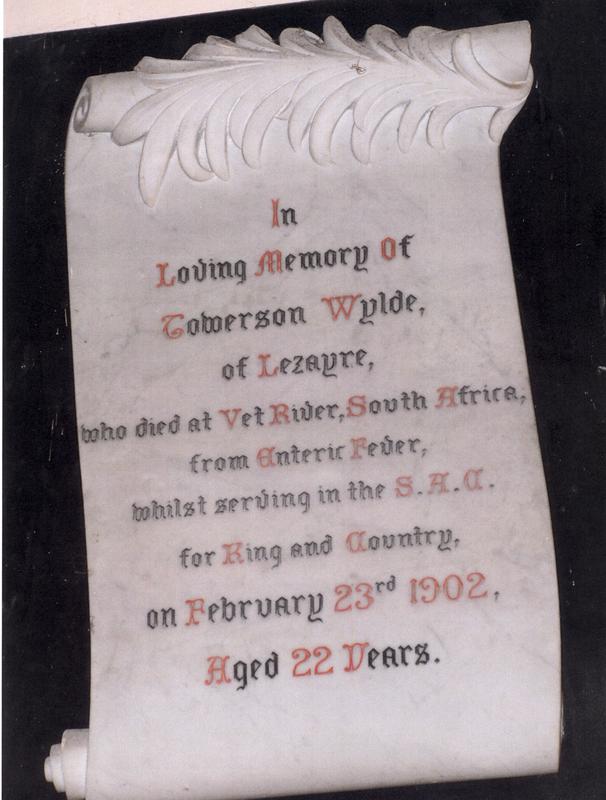 In
Loving Memory Of
Towerson Wylde,
of Lezayre,
who died at Vet River, South Africa,
from Enteric Fever,
whilst serving in the S.A.C.
for King and Country,
on February 23rd 1902,
Aged 22 Years.